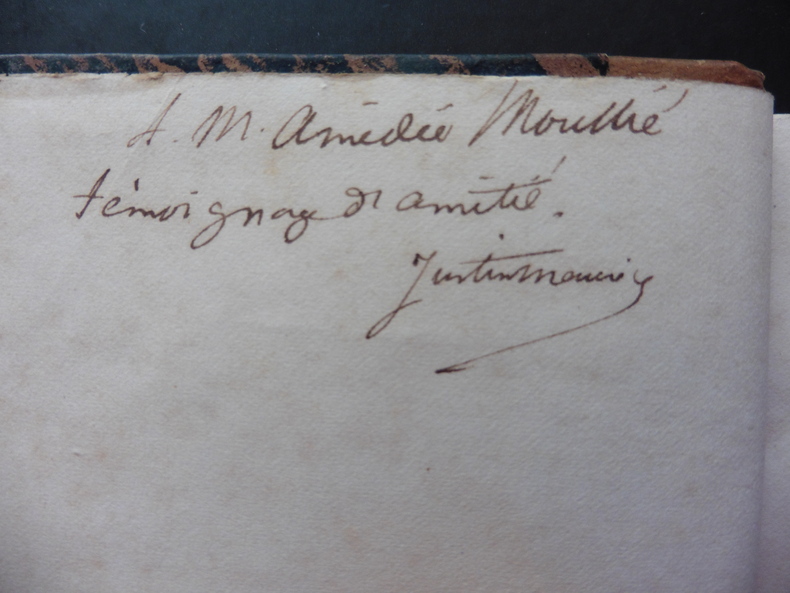 A. M. Amédée Moullié
témoignage d'amitié.
Justin Maurice